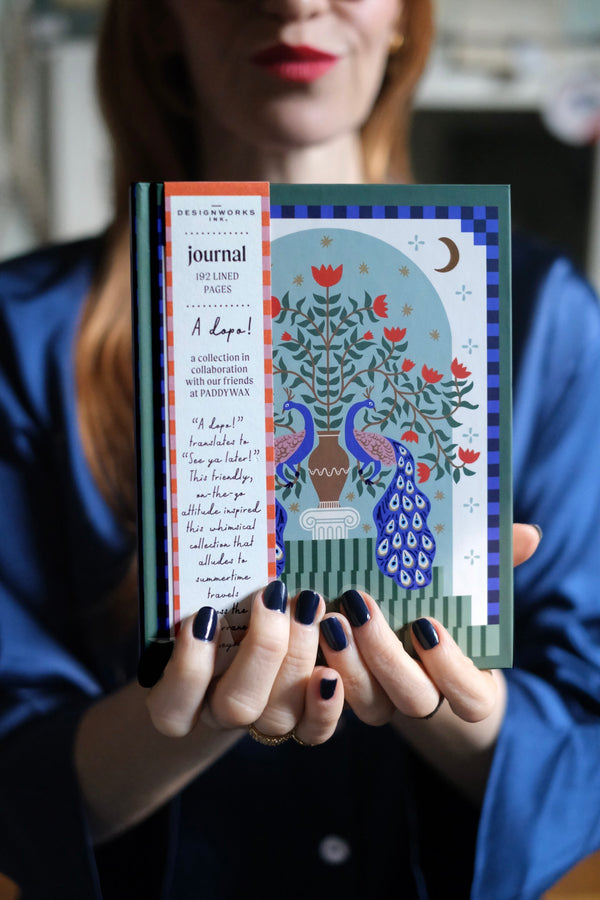 DESIGNWORKS
INK.
journal
192 LINED
PAGES
A dopo!
a collection in
collaboration
with our friends
at PADDYWAX
"A dopo!"
translates to
"See ya later!"
This friendly,
on-the-go
attitude inspired
this whimsical
collection that
alludes to
summertime
travels
the